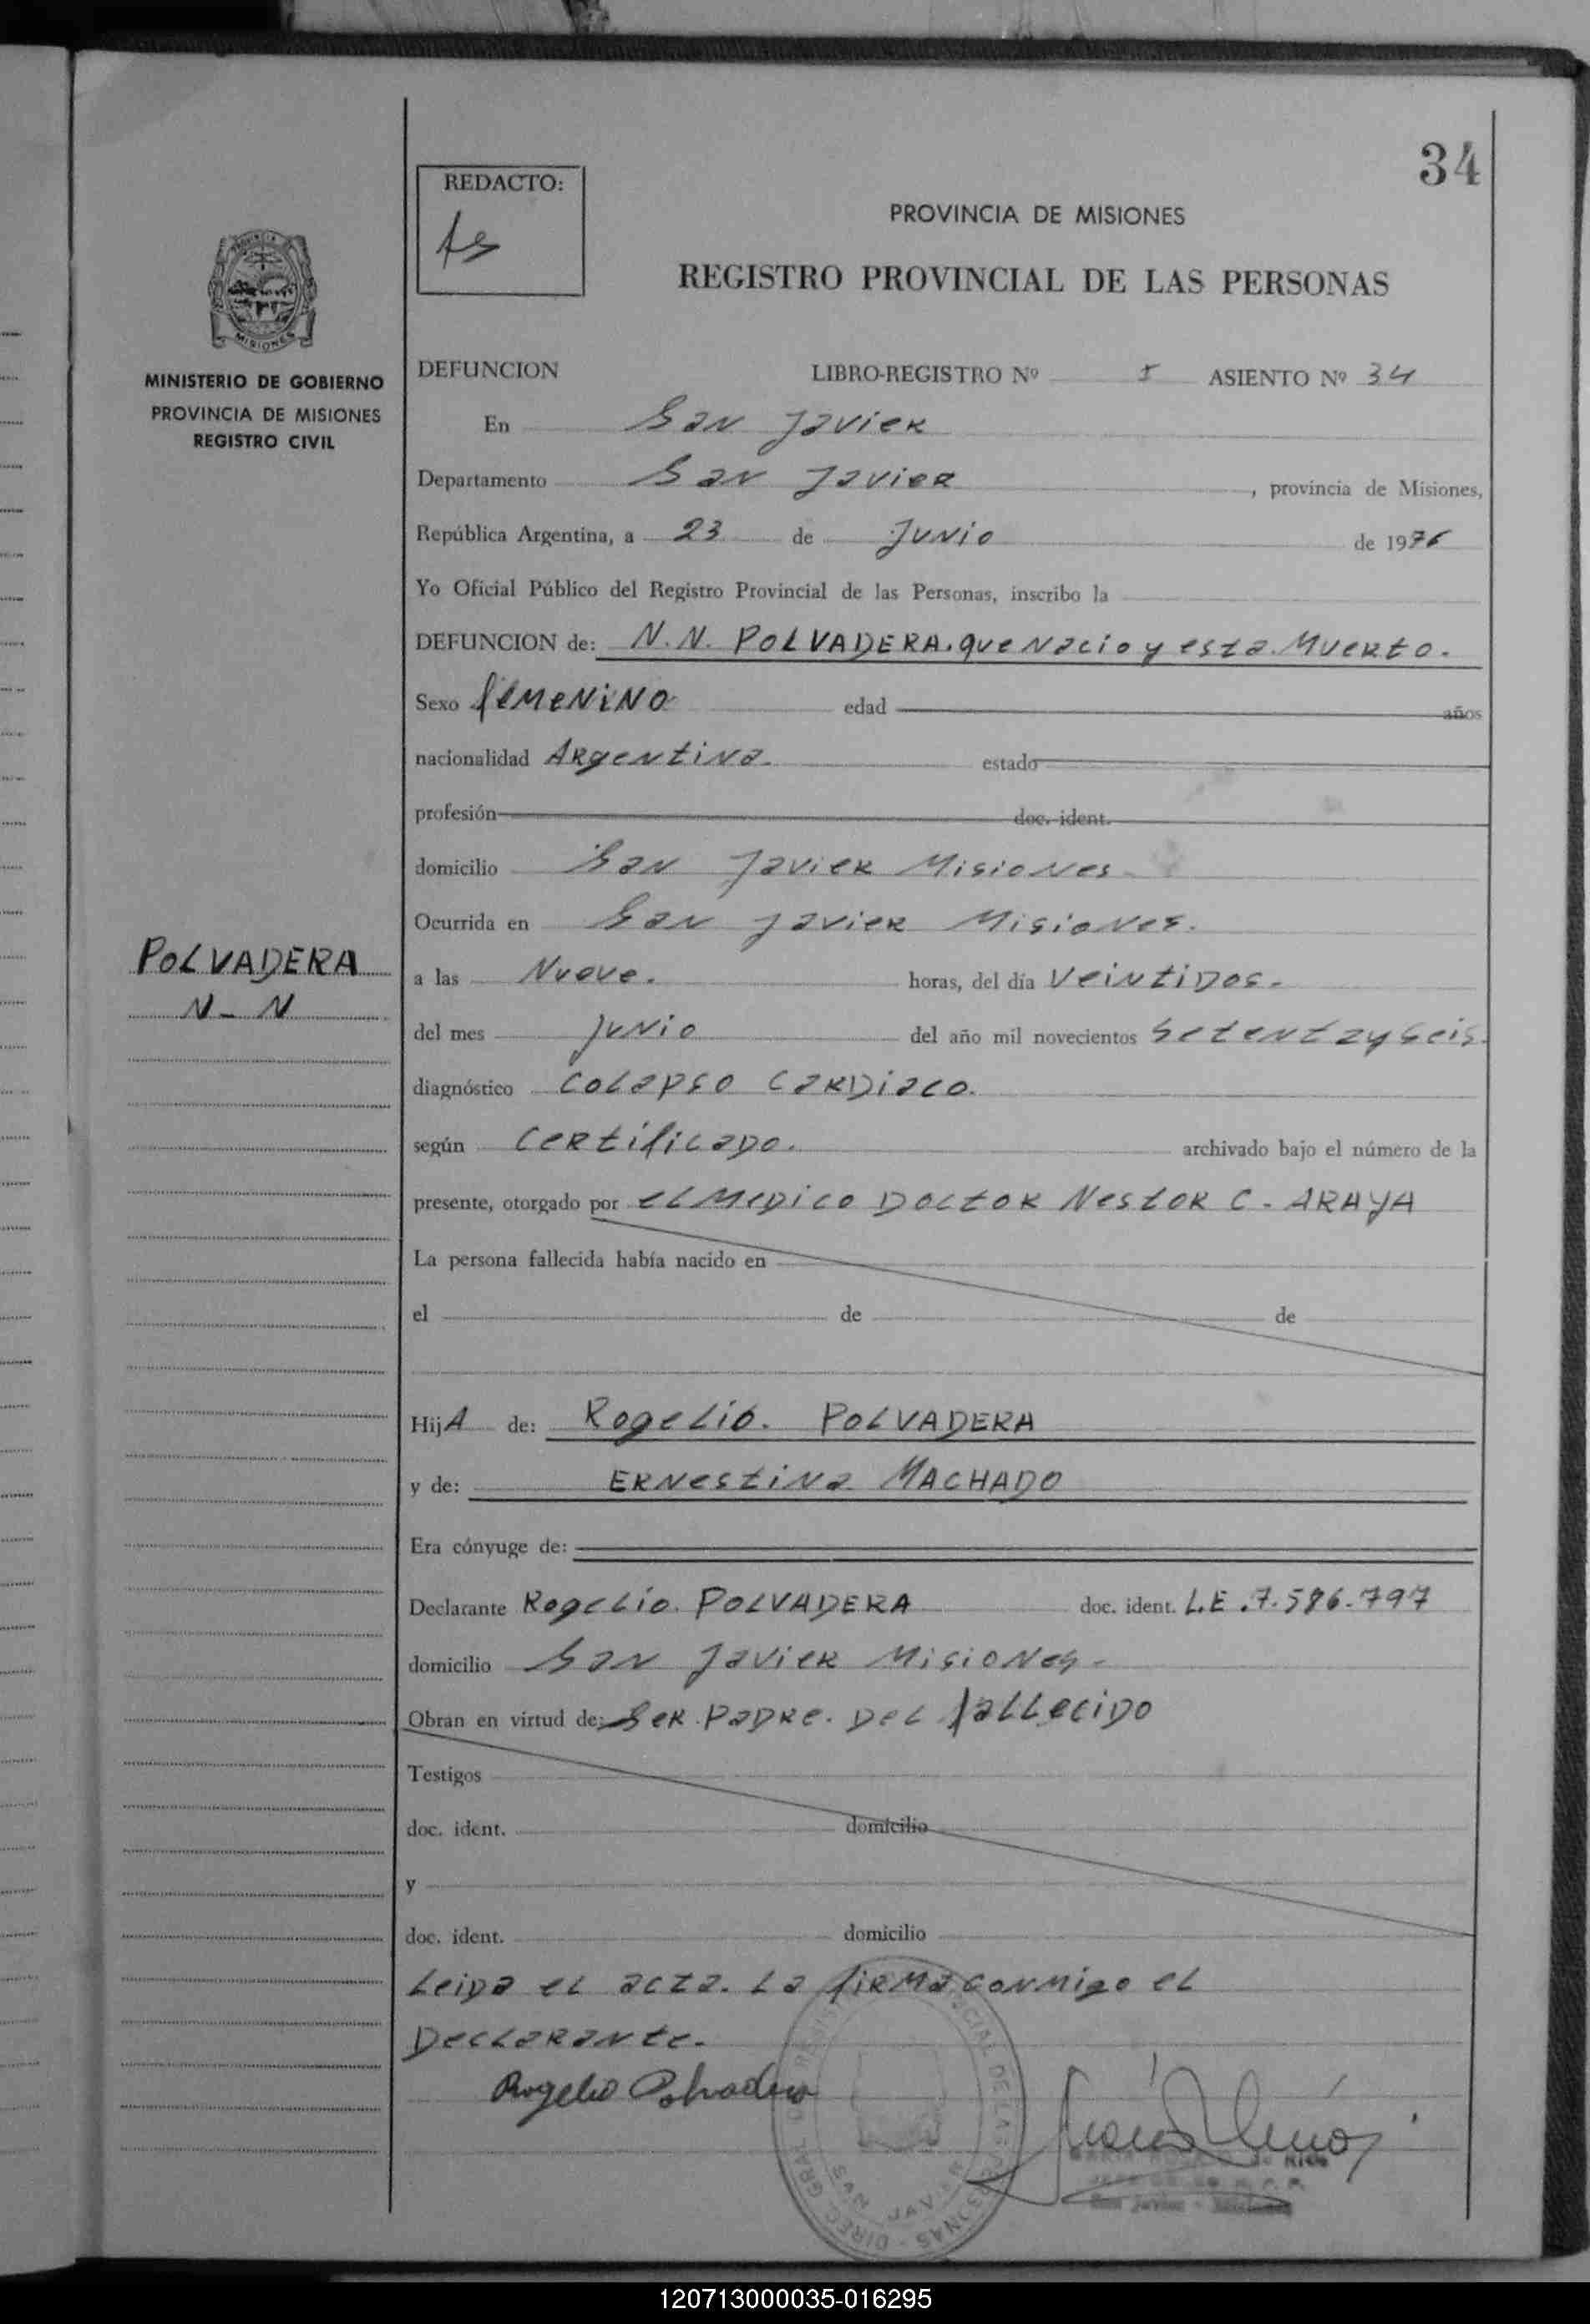 34
REDACTO:
PROVINCIA DE MISIONES
REGISTRO PROVINCIAL DE LAS PERSONAS
MISIONES
MINISTERIO DE GOBIERNO
PROVINCIA DE MISIONES
REGISTRO CIVIL
DEFUNCION LIBRO-REGISTRO Nº I ASIENTO Nº 34
En San Javier
Departamento San Javier, provincia de Misiones,
República Argentina, a 23 de Junio de 1976
Yo Oficial Público del Registro Provincial de las Personas, inscribo la
DEFUNCION de: N.N. POLVADERA. que Nacio y esta Muerto.
Sexo femenino edad años
nacionalidad Argentina. estado
profesión doc. ident.
domicilio San Javier Misiones
Ocurrida en San Javier Misiones.
POLVADERA
N-N
a las Nueve. horas, del día Veintidos.
del mes Junio del año mil novecientos Setenta y Seis.
diagnóstico Colapso Cardiaco.
según Certificado. archivado bajo el número de la
presente, otorgado por el Medico Doctor Nestor C. ARAYA
La persona fallecida había nacido en
el de de
HijA de: Rogelio. POLVADERA
y de: ERNestina MACHADO
Era cónyuge de:
Declarante Rogelio. POLVADERA doc. ident. L.E.7.586.797
domicilio San Javier Misiones-
Obran en virtud de: Ser Padre. Del fallecido
Testigos
doc. ident. domicilio
y
doc. ident. domicilio
Leida el acta. La firma conmigo el
Declarante.
Rogelio Polvadera
SAN JAVIER
120713000035-016295